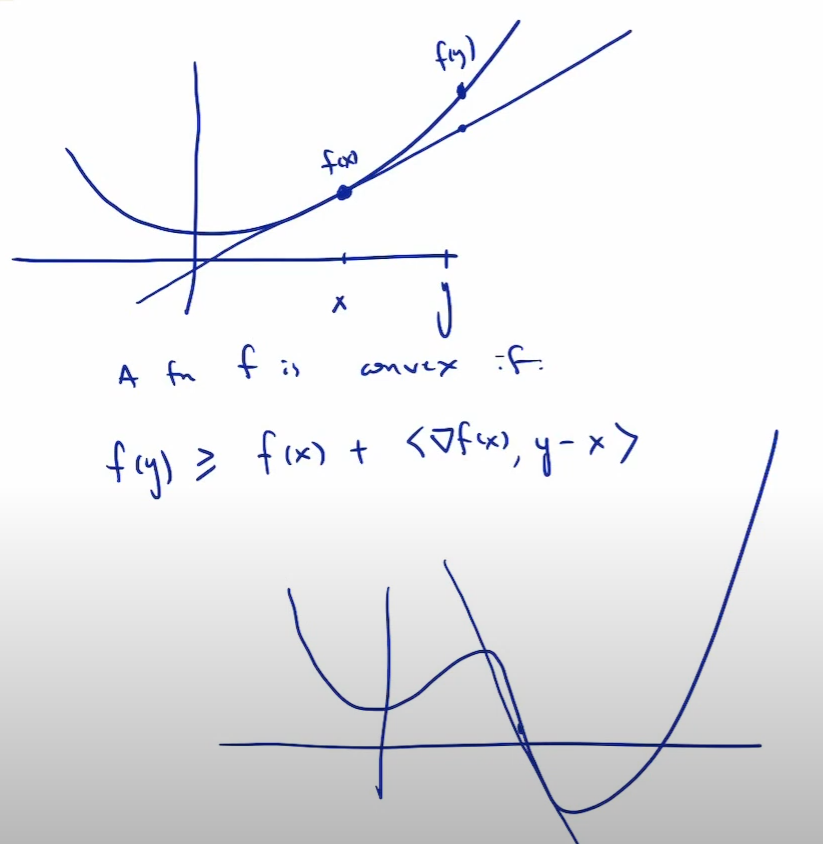 f(y)
f(x)
x y
A fn f is convex if:
f(y) ≥ f(x) + <∇f(x), y - x>